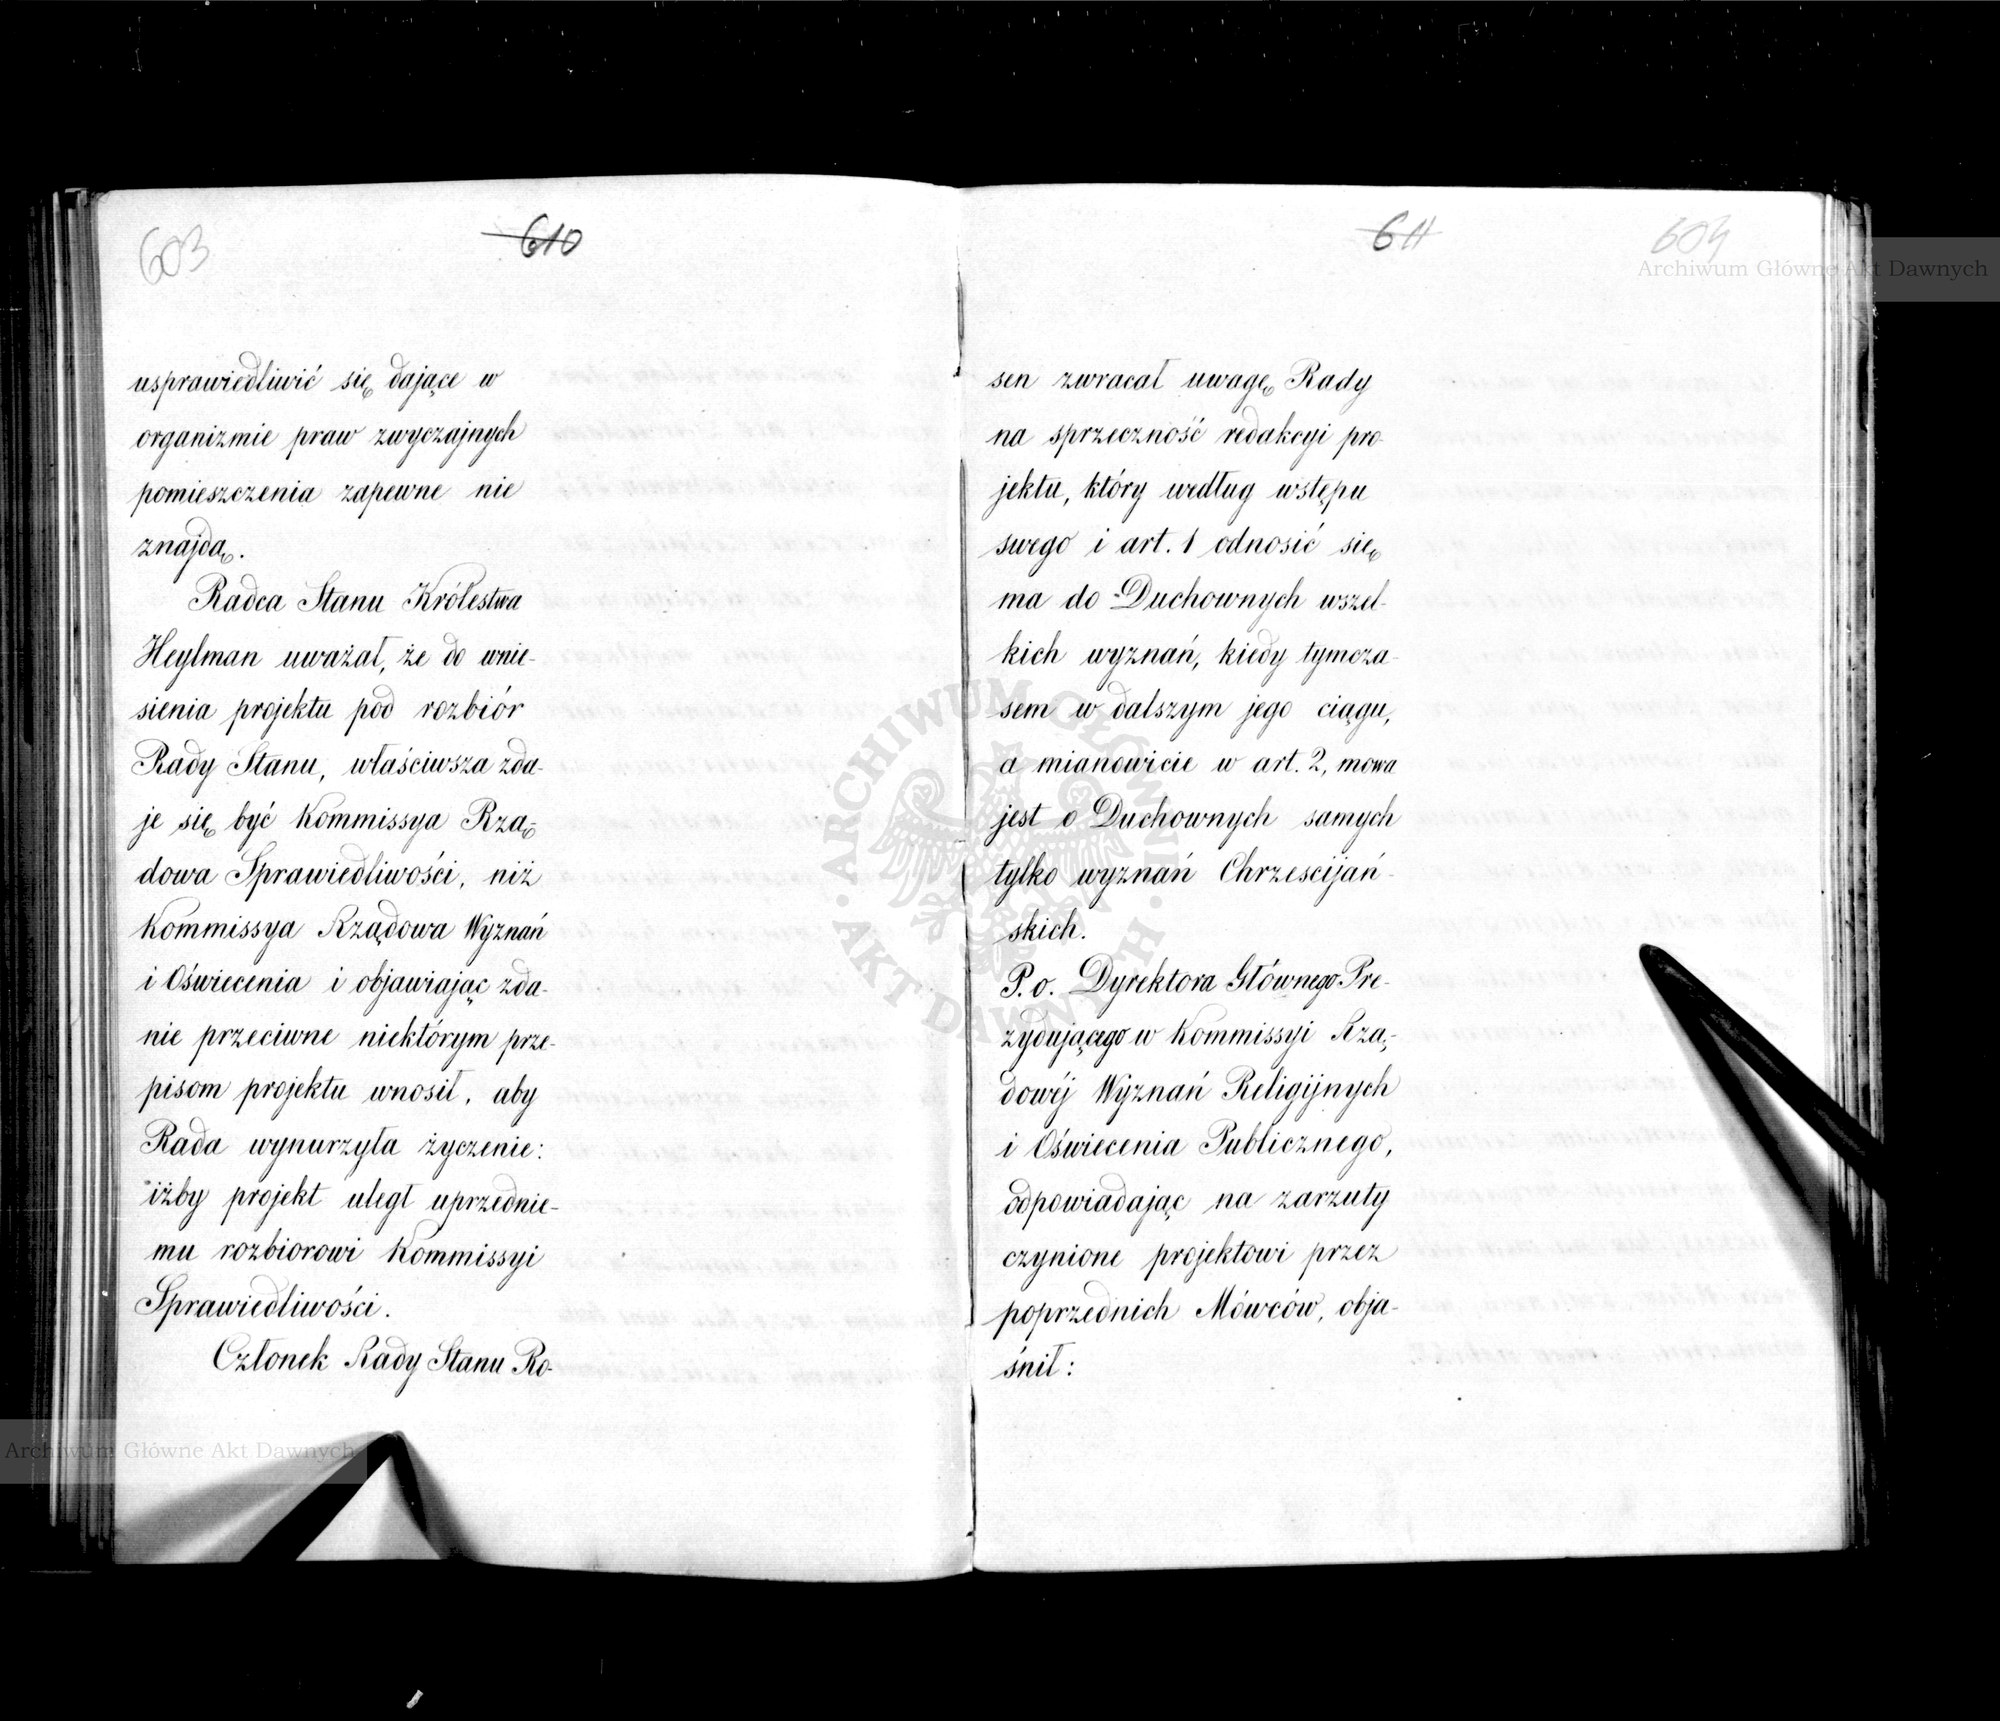 603
610
usprawiedliwić się dające w
organizmie praw zwyczajnych
pomieszczenia zapewne nie
znajdą.
Radca Stanu Królestwa
Heylman uważał, że do wnie-
sienia projektu pod rozbiór
Rady Stanu, właściwsza zda-
je się być Kommissya Rzą-
dowa Sprawiedliwości, niż
Kommissya Rządowa Wyznań
i Oświecenia i objawiając zda-
nie przeciwne niektórym prze-
pisom projektu wnosił, aby
Rada wynurzyła życzenie:
iżby projekt uległ uprzednie-
mu rozbiorowi Kommissyi
Sprawiedliwości.
Członek Rady Stanu Ro-
611
604
sen zwracał uwagę Rady
na sprzeczność redakcyi pro-
jektu, który według wstępu
swego i art. 1 odnosić się
ma do Duchownych wszel-
kich wyznań, kiedy tymcza-
sem w dalszym jego ciągu,
a mianowicie w art. 2, mowa
jest o Duchownych samych
tylko wyznań Chrzescijań-
skich.
P. o. Dyrektora Głównego Pre-
zydującego w Kommissyi Rzą-
dowéj Wyznań Religijnych
i Oświecenia Publicznego,
odpowiadając na zarzuty
czynione projektowi przez
poprzednich Mówców, obja-
śnił:
Archiwum Główne Akt Dawnych
ARCHIWUM GŁÓWNE AKT DAWNYCH
Archiwum Główne Akt Dawnych